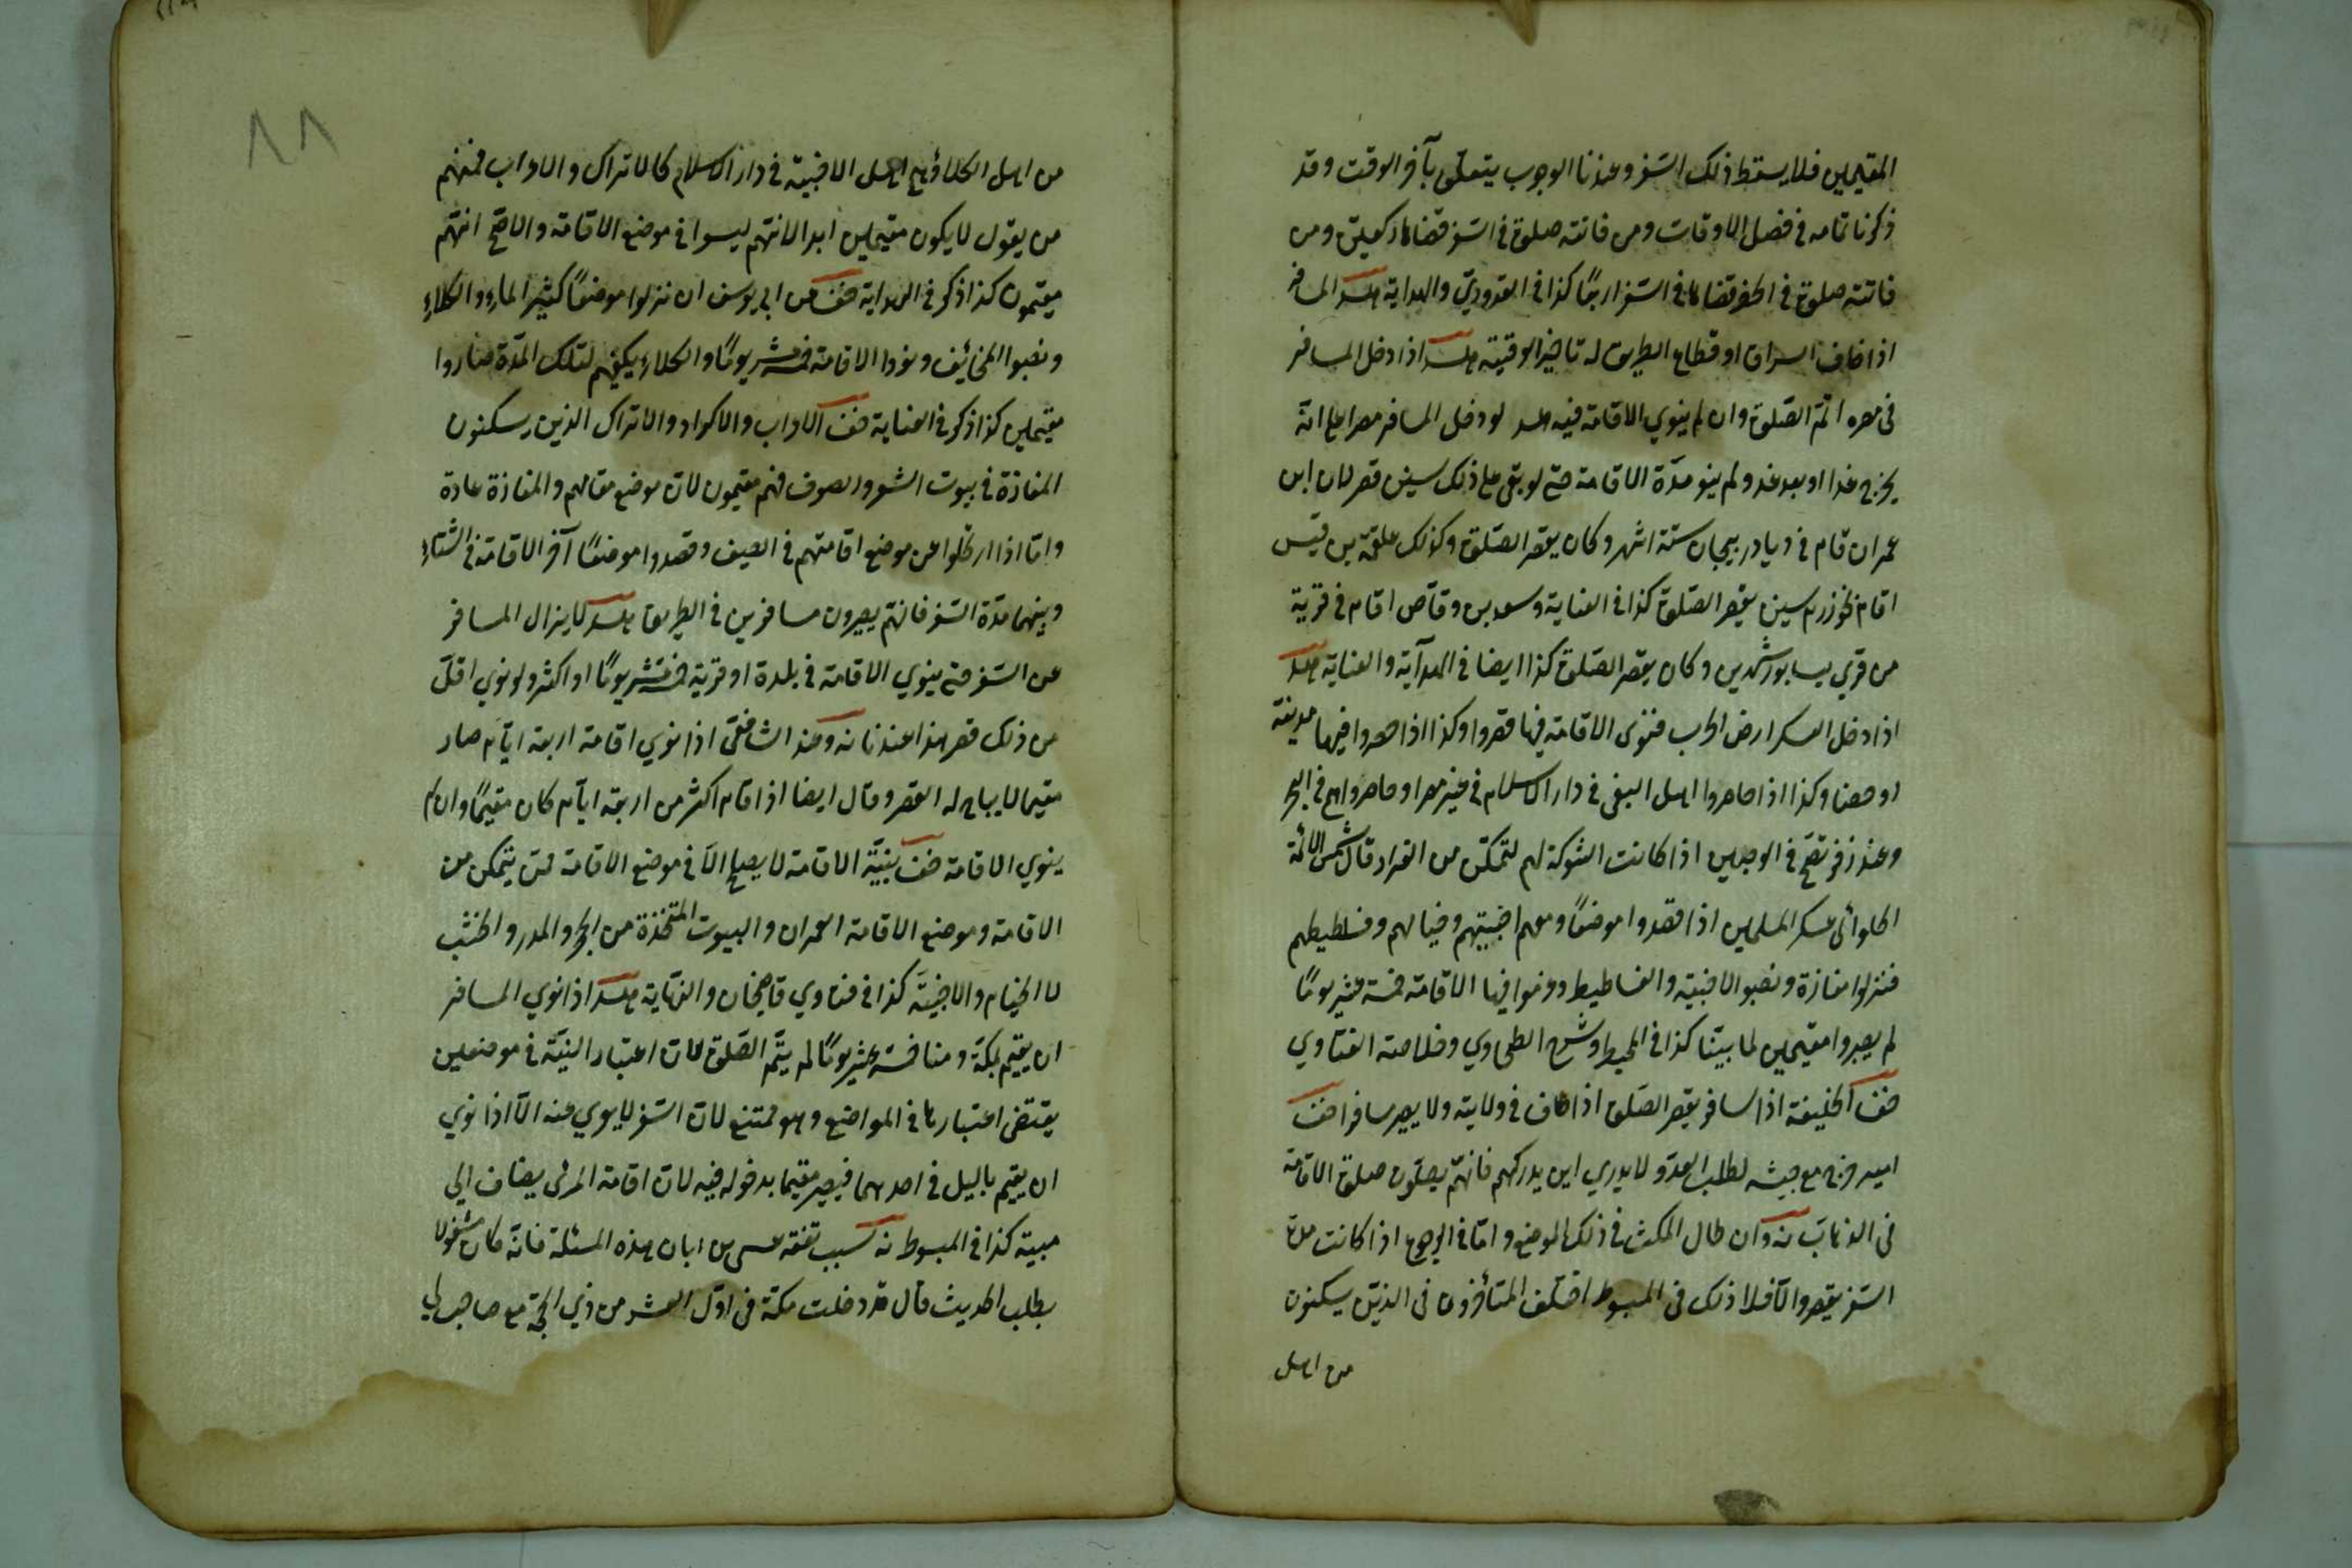 المقيمين فلا يسقط ذلك السّفر وعندنا الوجوب يتعلّق بآخر الوقت وقد
ذكرنا تمامه في فصل الاوقات ومن فاتته صلوة في السّفر قضاها ركعتين ومن
فاتته صلوة في الحضر قضاها في السّفر اربعًا كذا في القدوريّ والهداية مسئلة المسافر
اذا خاف السراق او قطاع الطريق له تاخير الوقتية مسئلة اذا دخل المسافر
في مصره اتمّ الصّلوة وان لم ينوي الاقامة فيه مسئلة لو دخل المسافر مصرا على انّه
يخرج غدا او بعد غد ولم ينو مدّة الاقامة حتى لو بقى على ذلك سنين قصر لان ابن
عمر ان قام في دياذربيجان ستّة اشهر وكان يقصر الصّلوة وكذلك علقمة بن قيس
اقام بخوارزم سنين يقصر الصّلوة كذا في العناية وسعد بن وقّاص اقام في قرية
من قري نيسابور شهرين وكان يقصر الصّلوة كذا ايضا في الهدآية والعناية مسئلة
اذا دخل العسكر ارض الحرب فنوى الاقامة فيها قصروا وكذا اذا حاصروا فيها مدينة
او حصنا وكذا اذا حاصروا اهل البغى في دار الاسلام في غير مصر او حاصروا هم في البحر
وعند زفر تصحّ في الوجهين اذا كانت الشوكة لهم لتمكّن من القرار قال شمس الائمّة
الحلوائى عسكر المسلمين اذا قصدوا موضعًا ومعهم اخبيتهم وخيالهم وفسطيطهم
فنزلوا مفازة ونصبوا الاخبيّه والفساطيط وعزموا فيها الاقامة خمسة عشر يومًا
لم يصيروا مقيمين لما بيّنّا كذا في المحيط وشرح الطحاوي وخلاصة الفتاوي
صف الخليفة اذا سافر يقصر الصّلوة اذا طاف في ولايته ولا يصير مسافرا صف
امير خرج مع جيشه لطلب العدوّ ولا يدري اين يدركهم فانّهم يصلّون صلوة الاقامة
في الذهاب وان طال المكث في ذلك الموضع وامّا في الرجوع اذا كانت مدّة
السّفر يقصر والّا فلا ذلك في المبسوط اختلف المتأخّرون في الذين يسكنون
من اهل
من اهل الكلاؤ هم اهل الاخبيّة في دار الاسلام كالاتراك والاعراب فمنهم
من يقول لا يكون مقيمين ابدا لانّهم ليسوا في موضع الاقامة والاصّح انّهم
مقيمون كذا ذكر في الهداية صف عن ابي يوسف ان نزلوا موضعًا كثير الماء والكلاءِ
ونصبوا المخائيف ونووا الاقامة خمسة عشر يومًا والكلاء يكفيهم لتلك المدّة صاروا
مقيمين كذا ذكر في العناية صف الاعراب والاكراد والاتراك الذين يسكنون
المفازة في بيوت الشعر والصوف فهم مقيمون لانّ موضع مقامهم والمفازة عادة
وامّا اذا ارتحلوا عن موضع اقامتهم في الصيف وقصدوا موضعًا آخر الاقامة في الشتاء
وبينهما مدّة السّفر فانّهم يصيرون مسافرين في الطريق مسئلة لا يزال المسافر
عن السّفر حتى ينوي الاقامة في بلدة او قرية خمسة عشر يومًا او اكثر ولو نوي اقلّ
من ذلك قصر هذا عندنا وعند الشافعّى اذا نوي اقامة اربعة ايّام صار
مقيما لا يباح له القصر وقال ايضا اذا قام اكثر من اربعة ايّام كان مقيمًا وان لم
ينوي الاقامة صف بنيّة الاقامة لا يصحّ الّا في موضع الاقامة لمن يتمكن من
الاقامة وموضع الاقامة العمران والبيوت المتّخذة من الحجر والمدر والخشب
لا الخيام والاخبيّة كذا في فتاوي قاضيخان والنهاية مسئلة اذا نوي المسافر
ان يقيم بمكّة ومنا خمسة عشر يومًا لم يتمّ الصّلوة لانّ اعتبار النيّة في موضعين
يقتضى اعتبارها في المواضع وهو ممتنع لانّ السّفر لا يعري عنه الّا اذا نوي
ان يقيم بالليل في احدهما فيصير مقيما بدخوله فيه لانّ اقامة المرئ يضاف الي
مبيته كذا في المبسوط سبب تفقه عيسى بن ابان هذه المسئلة فانّه كان مشغولا
بطلب الحديث قال قد دخلت مكّة في اوّل العشر من ذي الحجّة مع صاحب لي
٨٨